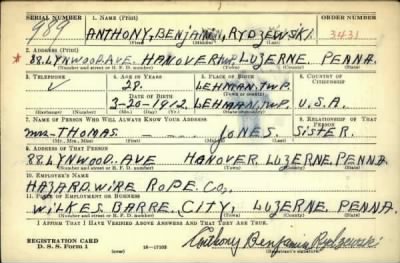 SERIAL NUMBER 1. NAME (Print) ORDER NUMBER
989 ANTHONY, BENJAMIN, RYDZEWSKI. 3431
(First) (Middle) (Last)
2. ADDRESS (Print)
* 88. LYNWOOD AVE. HANOVER TWP. LUZERNE. PENNA.
(Number and street or R. F. D. number) (Town) (County) (State)
3. TELEPHONE 4. AGE IN YEARS 5. PLACE OF BIRTH 6. COUNTRY OF CITIZENSHIP
✓ 28. LEHMAN. TWP.
DATE OF BIRTH (Town or county)
3-20-1912. LEHMAN. TWP. U.S.A.
(Exchange) (Number) (Mo.) (Day) (Yr.) (State or country)
7. NAME OF PERSON WHO WILL ALWAYS KNOW YOUR ADDRESS 8. RELATIONSHIP OF THAT PERSON
MRS- THOMAS. - - - - JONES. SISTER.
(Mr., Mrs., Miss) (First) (Middle) (Last)
9. ADDRESS OF THAT PERSON
88. LYNWOOD. AVE HANOVER. LUZERNE. PENNA
(Number and street or R. F. D. number) (Town) (County) (State)
10. EMPLOYER'S NAME
HAZARD. WIRE ROPE. CO,
11. PLACE OF EMPLOYMENT OR BUSINESS
WILKES. BARRE. CITY. LUZERNE. PENNA.
(Number and street or R. F. D. number) (Town) (County) (State)
I AFFIRM THAT I HAVE VERIFIED ABOVE ANSWERS AND THAT THEY ARE TRUE.
REGISTRATION CARD
D. S. S. Form 1 (over) 16—17105 Anthony Benjamin Rydzewski
(Registrant's signature)